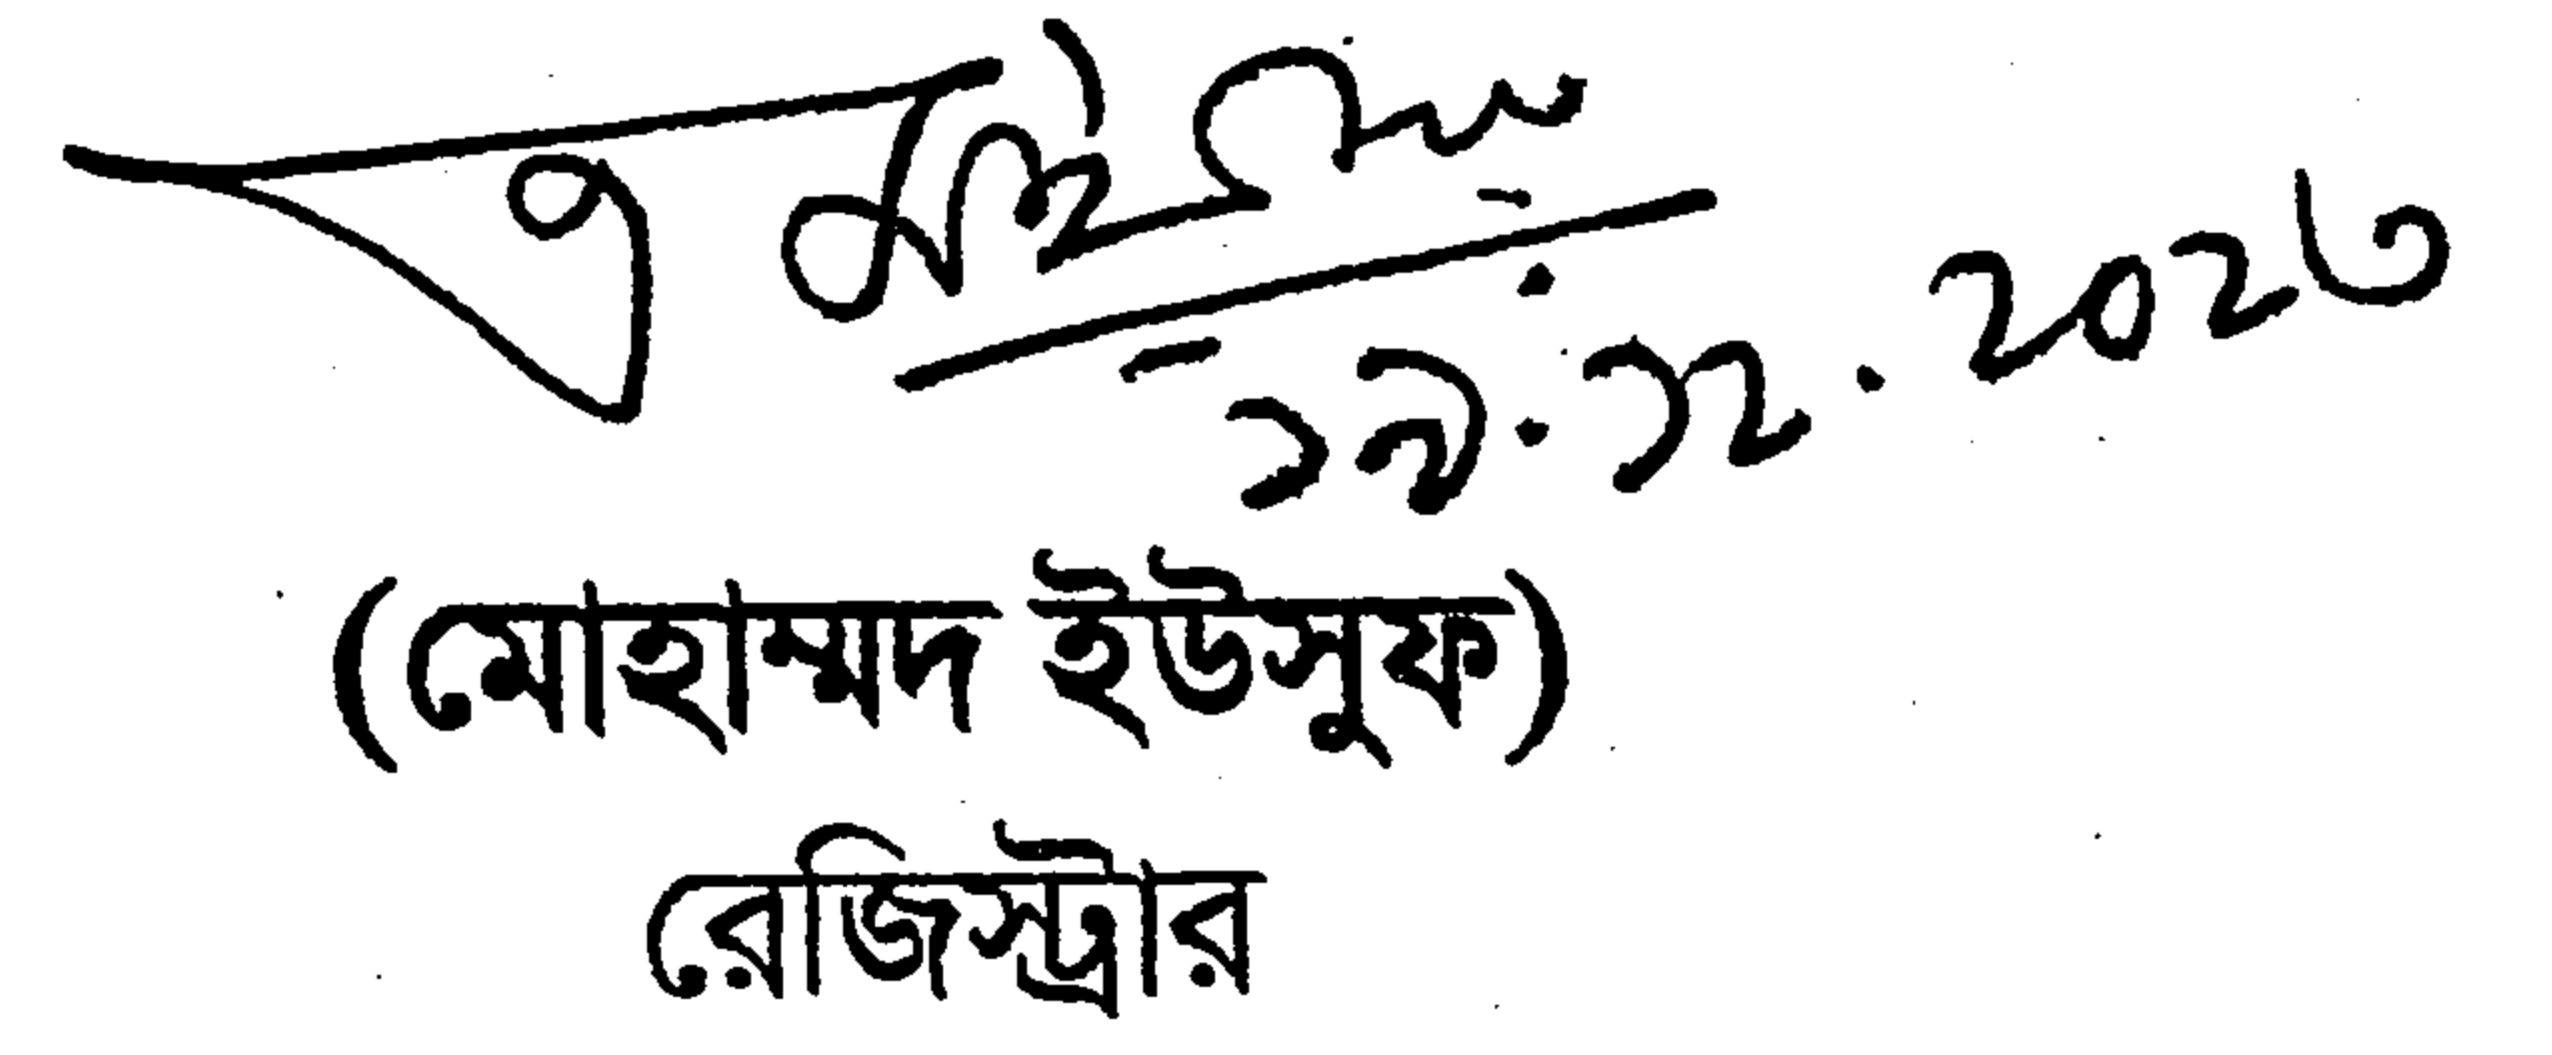 ১৯.১২.২০২৩
(মোহাম্মদ ইউসুফ)
রেজিস্ট্রার